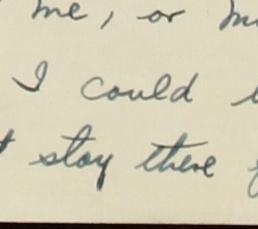 me, or
I could
stay there